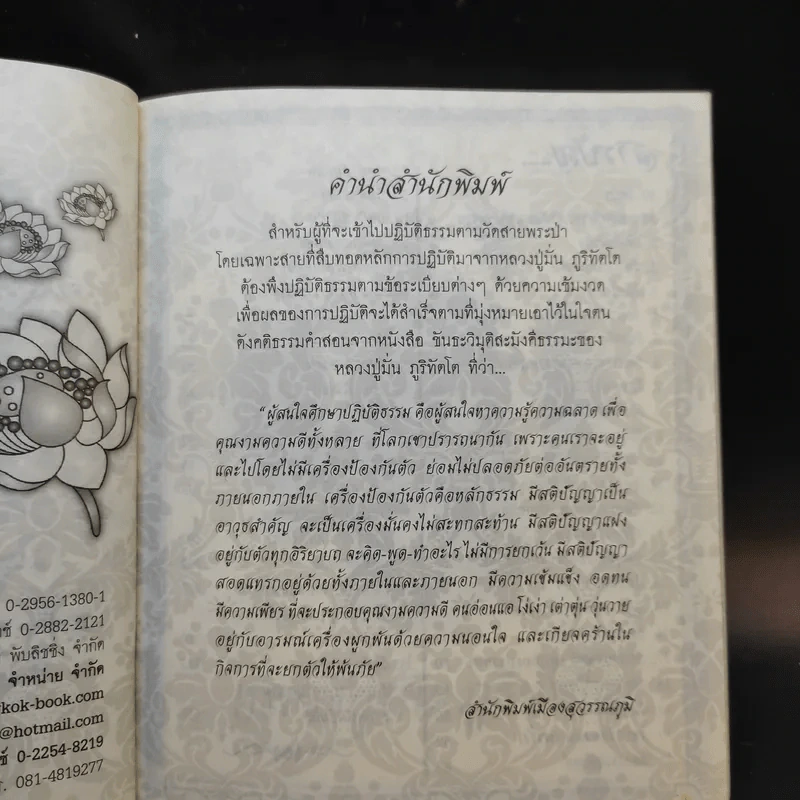 0-2956-1380-1
0-2882-2121
พับลิชชิ่ง จำกัด
จำหน่าย จำกัด
kok-book.com
@hotmail.com
0-2254-8219
081-4819277
คำนำสำนักพิมพ์
สำหรับผู้ที่จะเข้าไปปฏิบัติธรรมตามวัดสายพระป่า
โดยเฉพาะสายที่สืบทอดหลักการปฏิบัติมาจากหลวงปู่มั่น ภูริทัตโต
ต้องพึงปฏิบัติธรรมตามข้อระเบียบต่างๆ ด้วยความเข้มงวด
เพื่อผลของการปฏิบัติจะได้สำเร็จตามที่มุ่งหมายเอาไว้ในใจตน
ดังคติธรรมคำสอนจากหนังสือ ขันธะวิมุติสะมังคีธรรมะของ
หลวงปู่มั่น ภูริทัตโต ที่ว่า...
"ผู้สนใจศึกษาปฏิบัติธรรม คือผู้สนใจหาความรู้ความฉลาด เพื่อ
คุณงามความดีทั้งหลาย ที่โลกเขาปรารถนากัน เพราะคนเราจะอยู่
และไปโดยไม่มีเครื่องป้องกันตัว ย่อมไม่ปลอดภัยต่ออันตรายทั้ง
ภายนอกภายใน เครื่องป้องกันตัวคือหลักธรรม มีสติปัญญาเป็น
อาวุธสำคัญ จะเป็นเครื่องมั่นคงไม่สะทกสะท้าน มีสติปัญญาแฝง
อยู่กับตัวทุกอิริยาบถ จะคิด-พูด-ทำอะไร ไม่มีการยกเว้น มีสติปัญญา
สอดแทรกอยู่ด้วยทั้งภายในและภายนอก มีความเข้มแข็ง อดทน
มีความเพียร ที่จะประกอบคุณงามความดี คนอ่อนแอ โง่เง่า เต่าตุ่น วุ่นวาย
อยู่กับอารมณ์เครื่องผูกพันด้วยความนอนใจ และเกียจคร้านใน
กิจการที่จะยกตัวให้พ้นภัย"
สำนักพิมพ์เมืองสุวรรณภูมิ